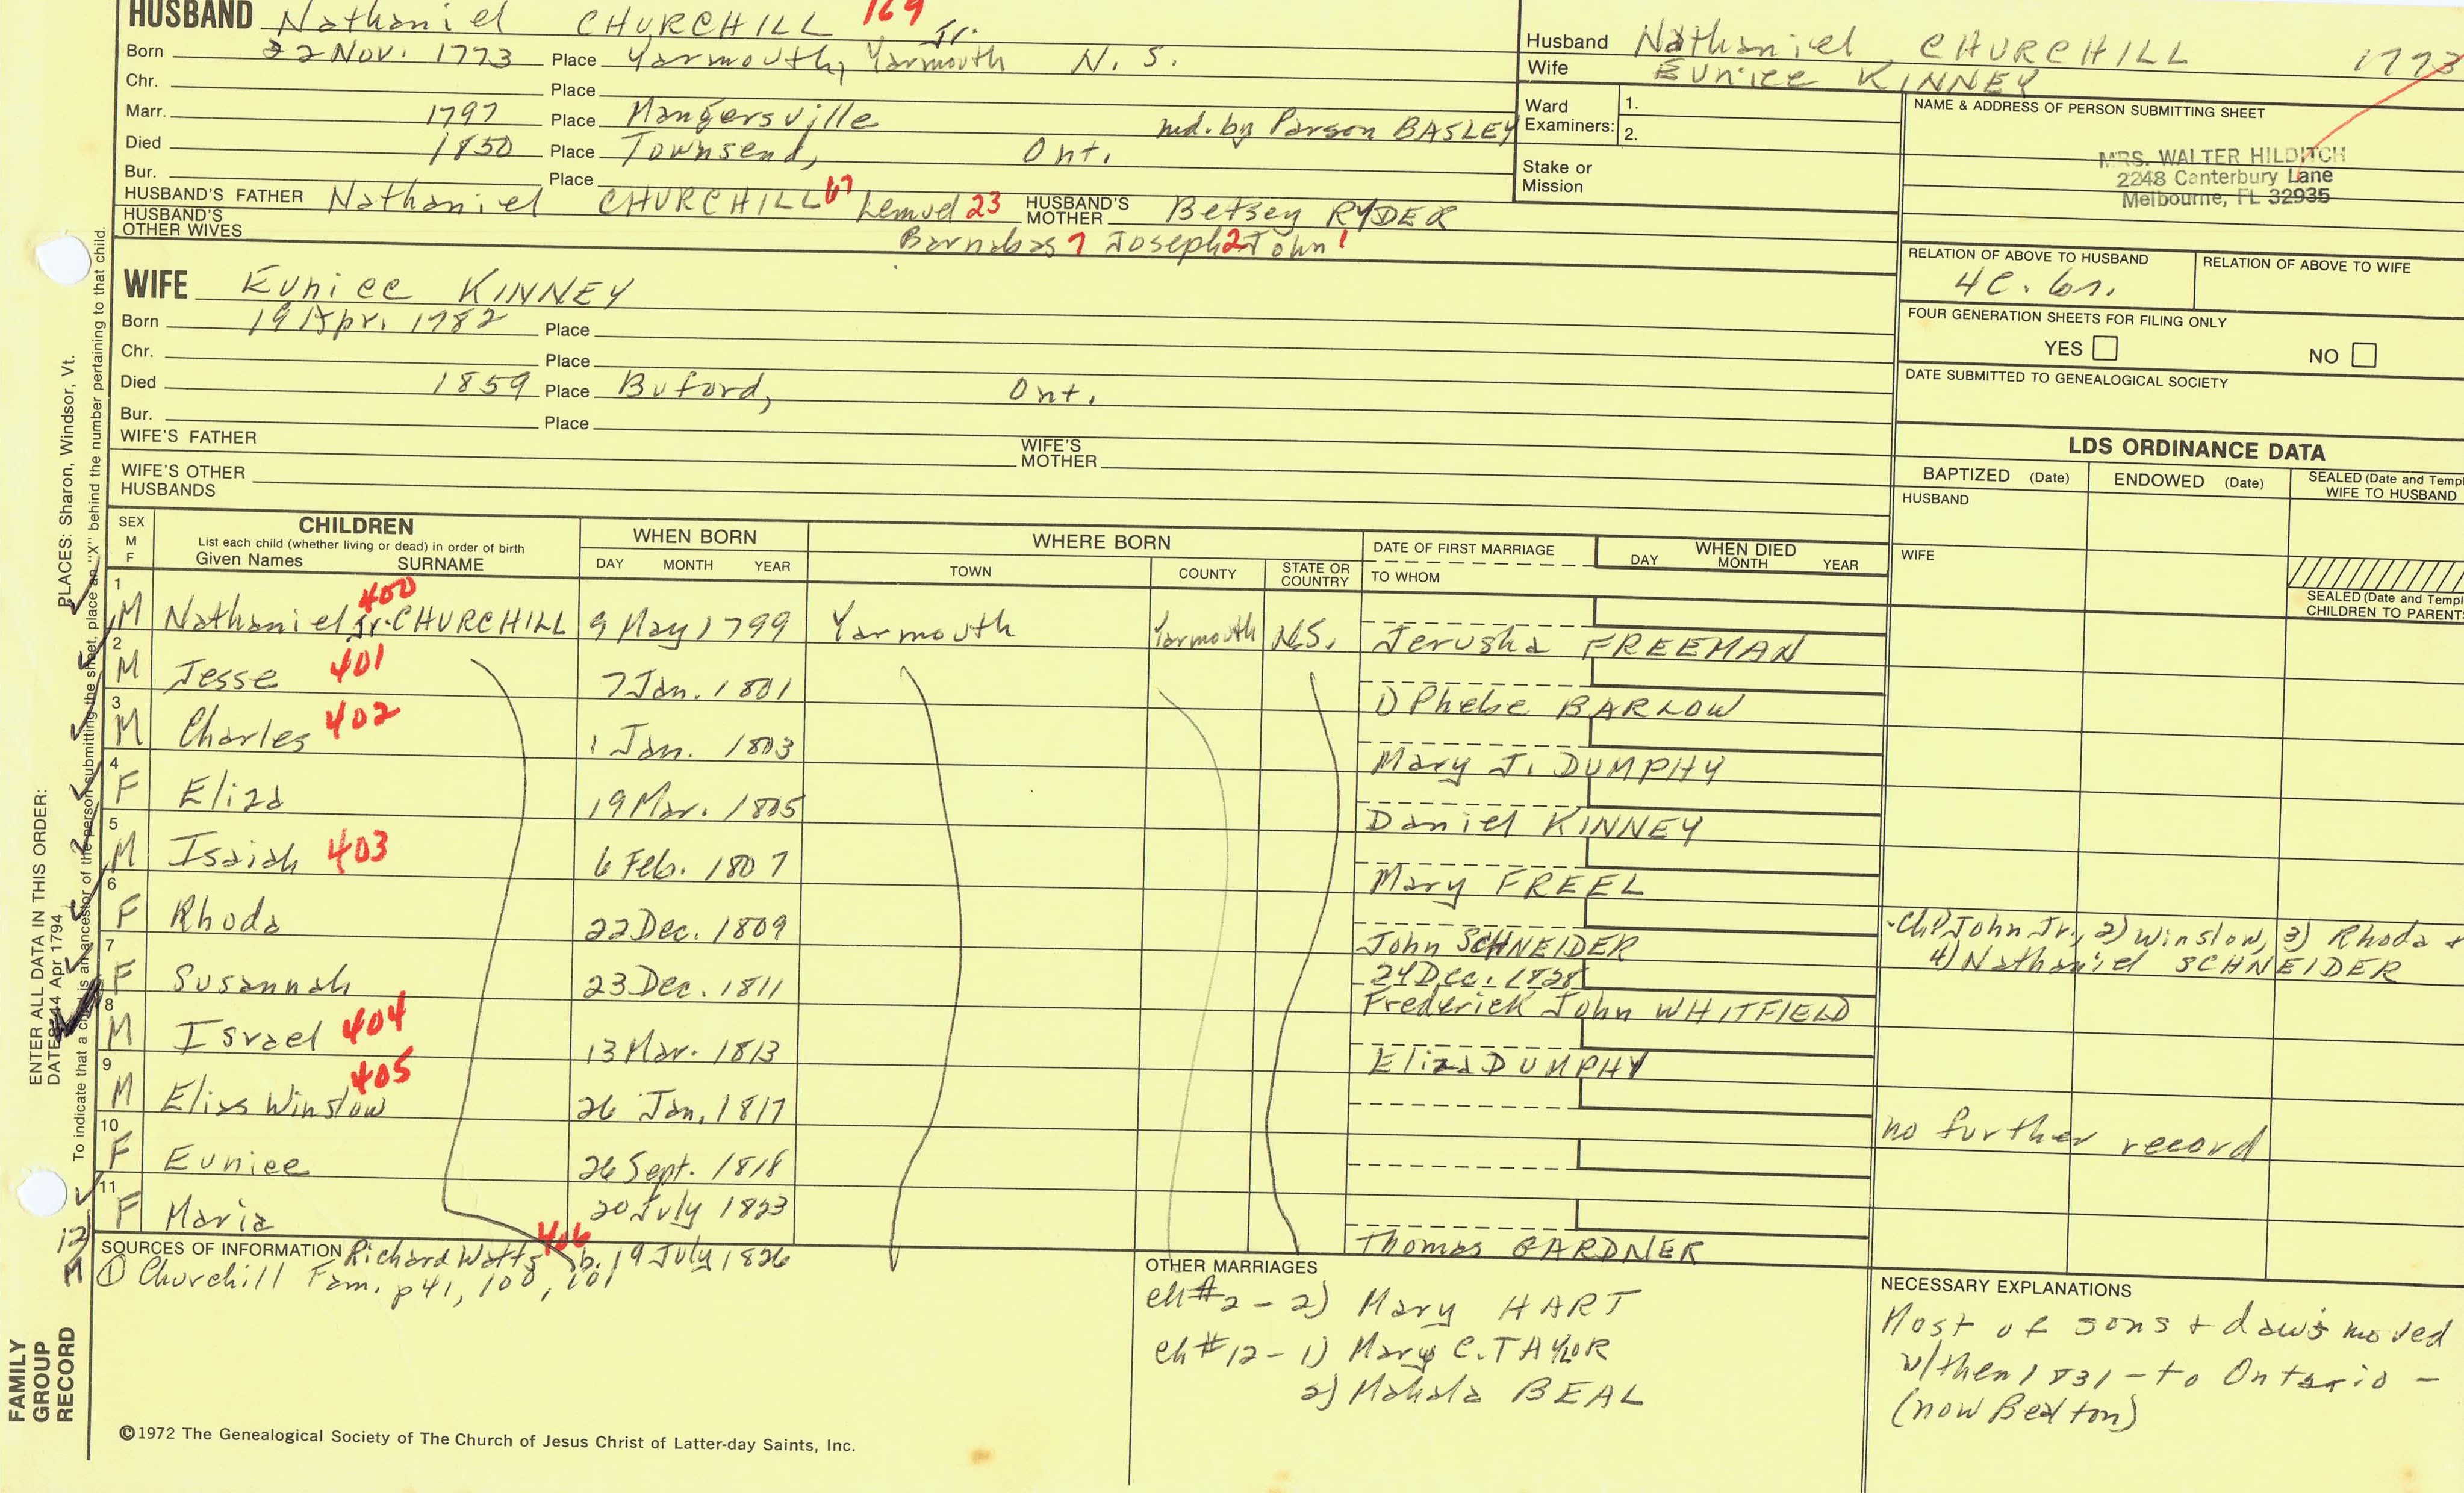 HUSBAND Nathaniel CHURCHILL 169 Jr.
Born 22 Nov. 1773 Place Yarmouth, Yarmouth N. S.
Chr. Place
Marr. 1797 Place Mangersville md. by Parson BASLEY
Died 1850 Place Townsend, Ont.
Bur. Place
HUSBAND'S FATHER Nathaniel CHURCHILL 67 Lemuel 23 HUSBAND'S MOTHER Betsey RYDER
HUSBAND'S OTHER WIVES Barnabas 7 Joseph 2 John 1
WIFE Eunice KINNEY
Born 19 Apr. 1782 Place
Chr. Place
Died 1859 Place Buford, Ont.
Bur. Place
WIFE'S FATHER WIFE'S MOTHER
WIFE'S OTHER HUSBANDS
Husband Nathaniel CHURCHILL 1773
Wife Eunice KINNEY
Ward Examiners: 1. 2.
Stake or Mission
NAME & ADDRESS OF PERSON SUBMITTING SHEET
MRS. WALTER HILDITCH
2248 Canterbury Lane
Melbourne, FL 32935
RELATION OF ABOVE TO HUSBAND RELATION OF ABOVE TO WIFE
4C. 6r.
FOUR GENERATION SHEETS FOR FILING ONLY
YES NO
DATE SUBMITTED TO GENEALOGICAL SOCIETY
LDS ORDINANCE DATA
BAPTIZED (Date) ENDOWED (Date) SEALED (Date and Templ
WIFE TO HUSBAND
HUSBAND
WIFE
SEALED (Date and Templ
CHILDREN TO PARENT
SEX M F CHILDREN WHEN BORN WHERE BORN DATE OF FIRST MARRIAGE WHEN DIED
List each child (whether living or dead) in order of birth
Given Names SURNAME DAY MONTH YEAR TOWN COUNTY STATE OR COUNTRY TO WHOM DAY MONTH YEAR
1 M Nathaniel Jr. CHURCHILL 400 9 May 1799 Yarmouth Yarmouth N.S. Jerusha FREEMAN
2 M Jesse 401 7 Jan. 1801 1) Phebe BARLOW
3 M Charles 402 1 Jan. 1803 Mary J. DUMPHY
4 F Eliza 19 Mar. 1805 Daniel KINNEY
5 M Isaiah 403 6 Feb. 1807 Mary FREEL
6 F Rhoda 22 Dec. 1809 John SCHNEIDER -Ch1) John Jr., 2) Winslow, 3) Rhoda +
4) Nathaniel SCHNEIDER
7 F Susannah 23 Dec. 1811 24 Dec. 1828 Frederick John WHITFIELD
8 M Israel 404 13 Mar. 1813 Eliza DUMPHY
9 M Elias Winslow 405 26 Jan. 1817
10 F Eunice 26 Sept. 1818 no further record
11 F Maria 20 July 1823 Thomas GARDNER
12 M SOURCES OF INFORMATION Richard Watts 406 b. 19 July 1826
① Churchill Fam. p 41, 100, 101
OTHER MARRIAGES
ch #2 - 2) Mary HART
ch #12 - 1) Mary C. TAYLOR
2) Mahala BEAL
NECESSARY EXPLANATIONS
Most of sons + daus moved
w/them 1831 - to Ontario -
(now Bealton)
©1972 The Genealogical Society of The Church of Jesus Christ of Latter-day Saints, Inc.
FAMILY
GROUP
RECORD
ENTER ALL DATA IN THIS ORDER:
DATES: 14 Apr 1794
PLACES: Sharon, Windsor, Vt.
To indicate that a child is an ancestor of the person submitting the sheet, place an "X" behind the number pertaining to that child.